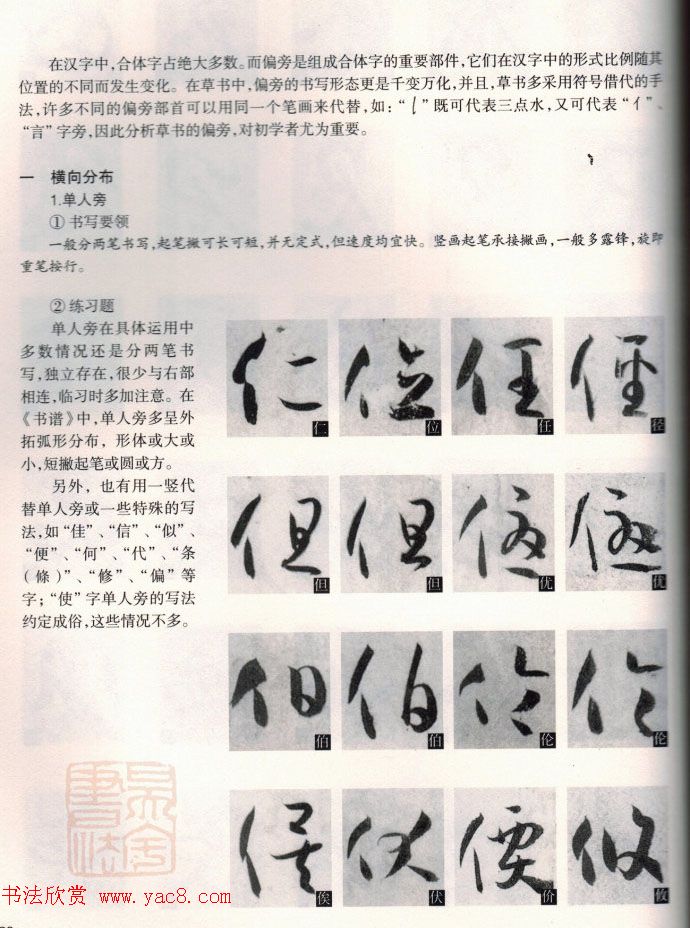 在汉字中，合体字占绝大多数。而偏旁是组成合体字的重要部件，它们在汉字中的形式比例随其
位置的不同而发生变化。在草书中，偏旁的书写形态更是千变万化，并且，草书多采用符号借代的手
法，许多不同的偏旁部首可以用同一个笔画来代替，如：“ ”既可代表三点水，又可代表“亻”、
“言”字旁，因此分析草书的偏旁，对初学者尤为重要。
一 横向分布
1.单人旁
① 书写要领
一般分两笔书写，起笔撇可长可短，并无定式，但速度均宜快。竖画起笔承接撇画，一般多露锋，旋即
重笔按行。
② 练习题
单人旁在具体运用中
多数情况还是分两笔书
写，独立存在，很少与右部
相连，临习时多加注意。在
《书谱》中，单人旁多呈外
拓弧形分布，形体或大或
小，短撇起笔或圆或方。
另外，也有用一竖代
替单人旁或一些特殊的写
法，如“佳”、“信”、“似”、
“便”、“何”、“代”、“条
（條）”、“修”、“偏”等
字；“使”字单人旁的写法
约定成俗，这些情况不多。
仁 位 任 径
但 但 优 优
伯 伯 伦 伦
俟 伏 价 攸
书法欣赏 www.yac8.com